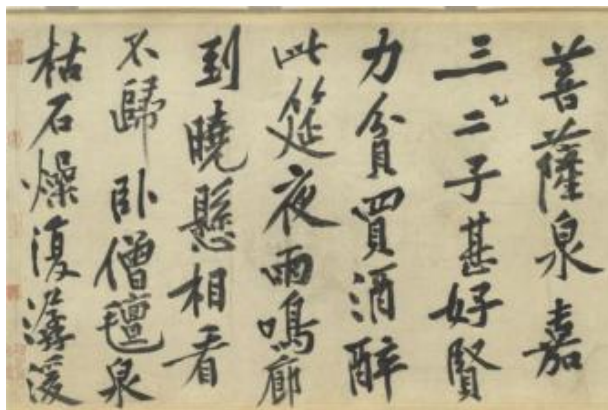 菩薩泉嘉
三二子甚好賢
力貧買酒醉
此筵夜雨鳴廊
到曉懸相看
不歸臥僧氈泉
枯石燥復潺湲